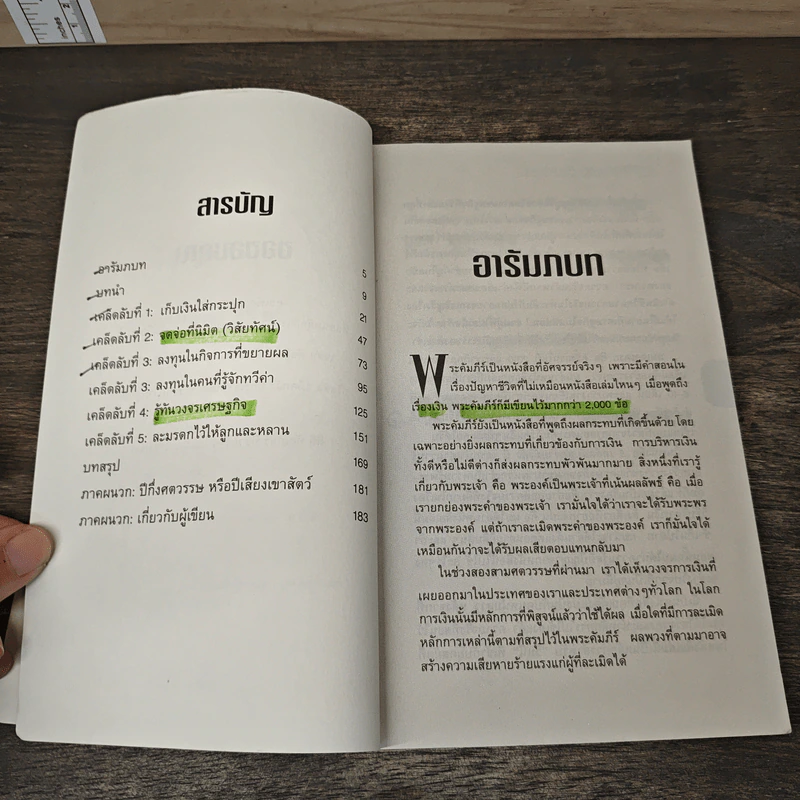 inches
1
2
สารบัญ
อารัมภบท 5
บทนำ 9
เคล็ดลับที่ 1: เก็บเงินใส่กระปุก 21
เคล็ดลับที่ 2: จดจ่อที่นิมิต (วิสัยทัศน์) 47
เคล็ดลับที่ 3: ลงทุนในกิจการที่ขยายผล 73
เคล็ดลับที่ 3: ลงทุนในคนที่รู้จักทวีค่า 95
เคล็ดลับที่ 4: รู้ทันวงจรเศรษฐกิจ 125
เคล็ดลับที่ 5: ละมรดกไว้ให้ลูกและหลาน 151
บทสรุป 169
ภาคผนวก: ปีกึ่งศตวรรษ หรือปีเสียงเขาสัตว์ 181
ภาคผนวก: เกี่ยวกับผู้เขียน 183
อารัมภบท
พระคัมภีร์เป็นหนังสือที่อัศจรรย์จริงๆ เพราะมีคำสอนใน
เรื่องปัญหาชีวิตที่ไม่เหมือนหนังสือเล่มไหนๆ เมื่อพูดถึง
เรื่องเงิน พระคัมภีร์ก็มีเขียนไว้มากกว่า 2,000 ข้อ
พระคัมภีร์ยังเป็นหนังสือที่พูดถึงผลกระทบที่เกิดขึ้นด้วย โดย
เฉพาะอย่างยิ่งผลกระทบที่เกี่ยวข้องกับการเงิน การบริหารเงิน
ทั้งดีหรือไม่ดีต่างก็ส่งผลกระทบพัวพันมากมาย สิ่งหนึ่งที่เรารู้
เกี่ยวกับพระเจ้า คือ พระองค์เป็นพระเจ้าที่เน้นผลลัพธ์ คือ เมื่อ
เรายกย่องพระคำของพระเจ้า เรามั่นใจได้ว่าเราจะได้รับพระพร
จากพระองค์ แต่ถ้าเราละเมิดพระคำของพระองค์ เราก็มั่นใจได้
เหมือนกันว่าจะได้รับผลเสียตอบแทนกลับมา
ในช่วงสองสามศตวรรษที่ผ่านมา เราได้เห็นวงจรการเงินที่
เผยออกมาในประเทศของเราและประเทศต่างๆทั่วโลก ในโลก
การเงินนั้นมีหลักการที่พิสูจน์แล้วว่าใช้ได้ผล เมื่อใดที่มีการละเมิด
หลักการเหล่านี้ตามที่สรุปไว้ในพระคัมภีร์ ผลพวงที่ตามมาอาจ
สร้างความเสียหายร้ายแรงแก่ผู้ที่ละเมิดได้